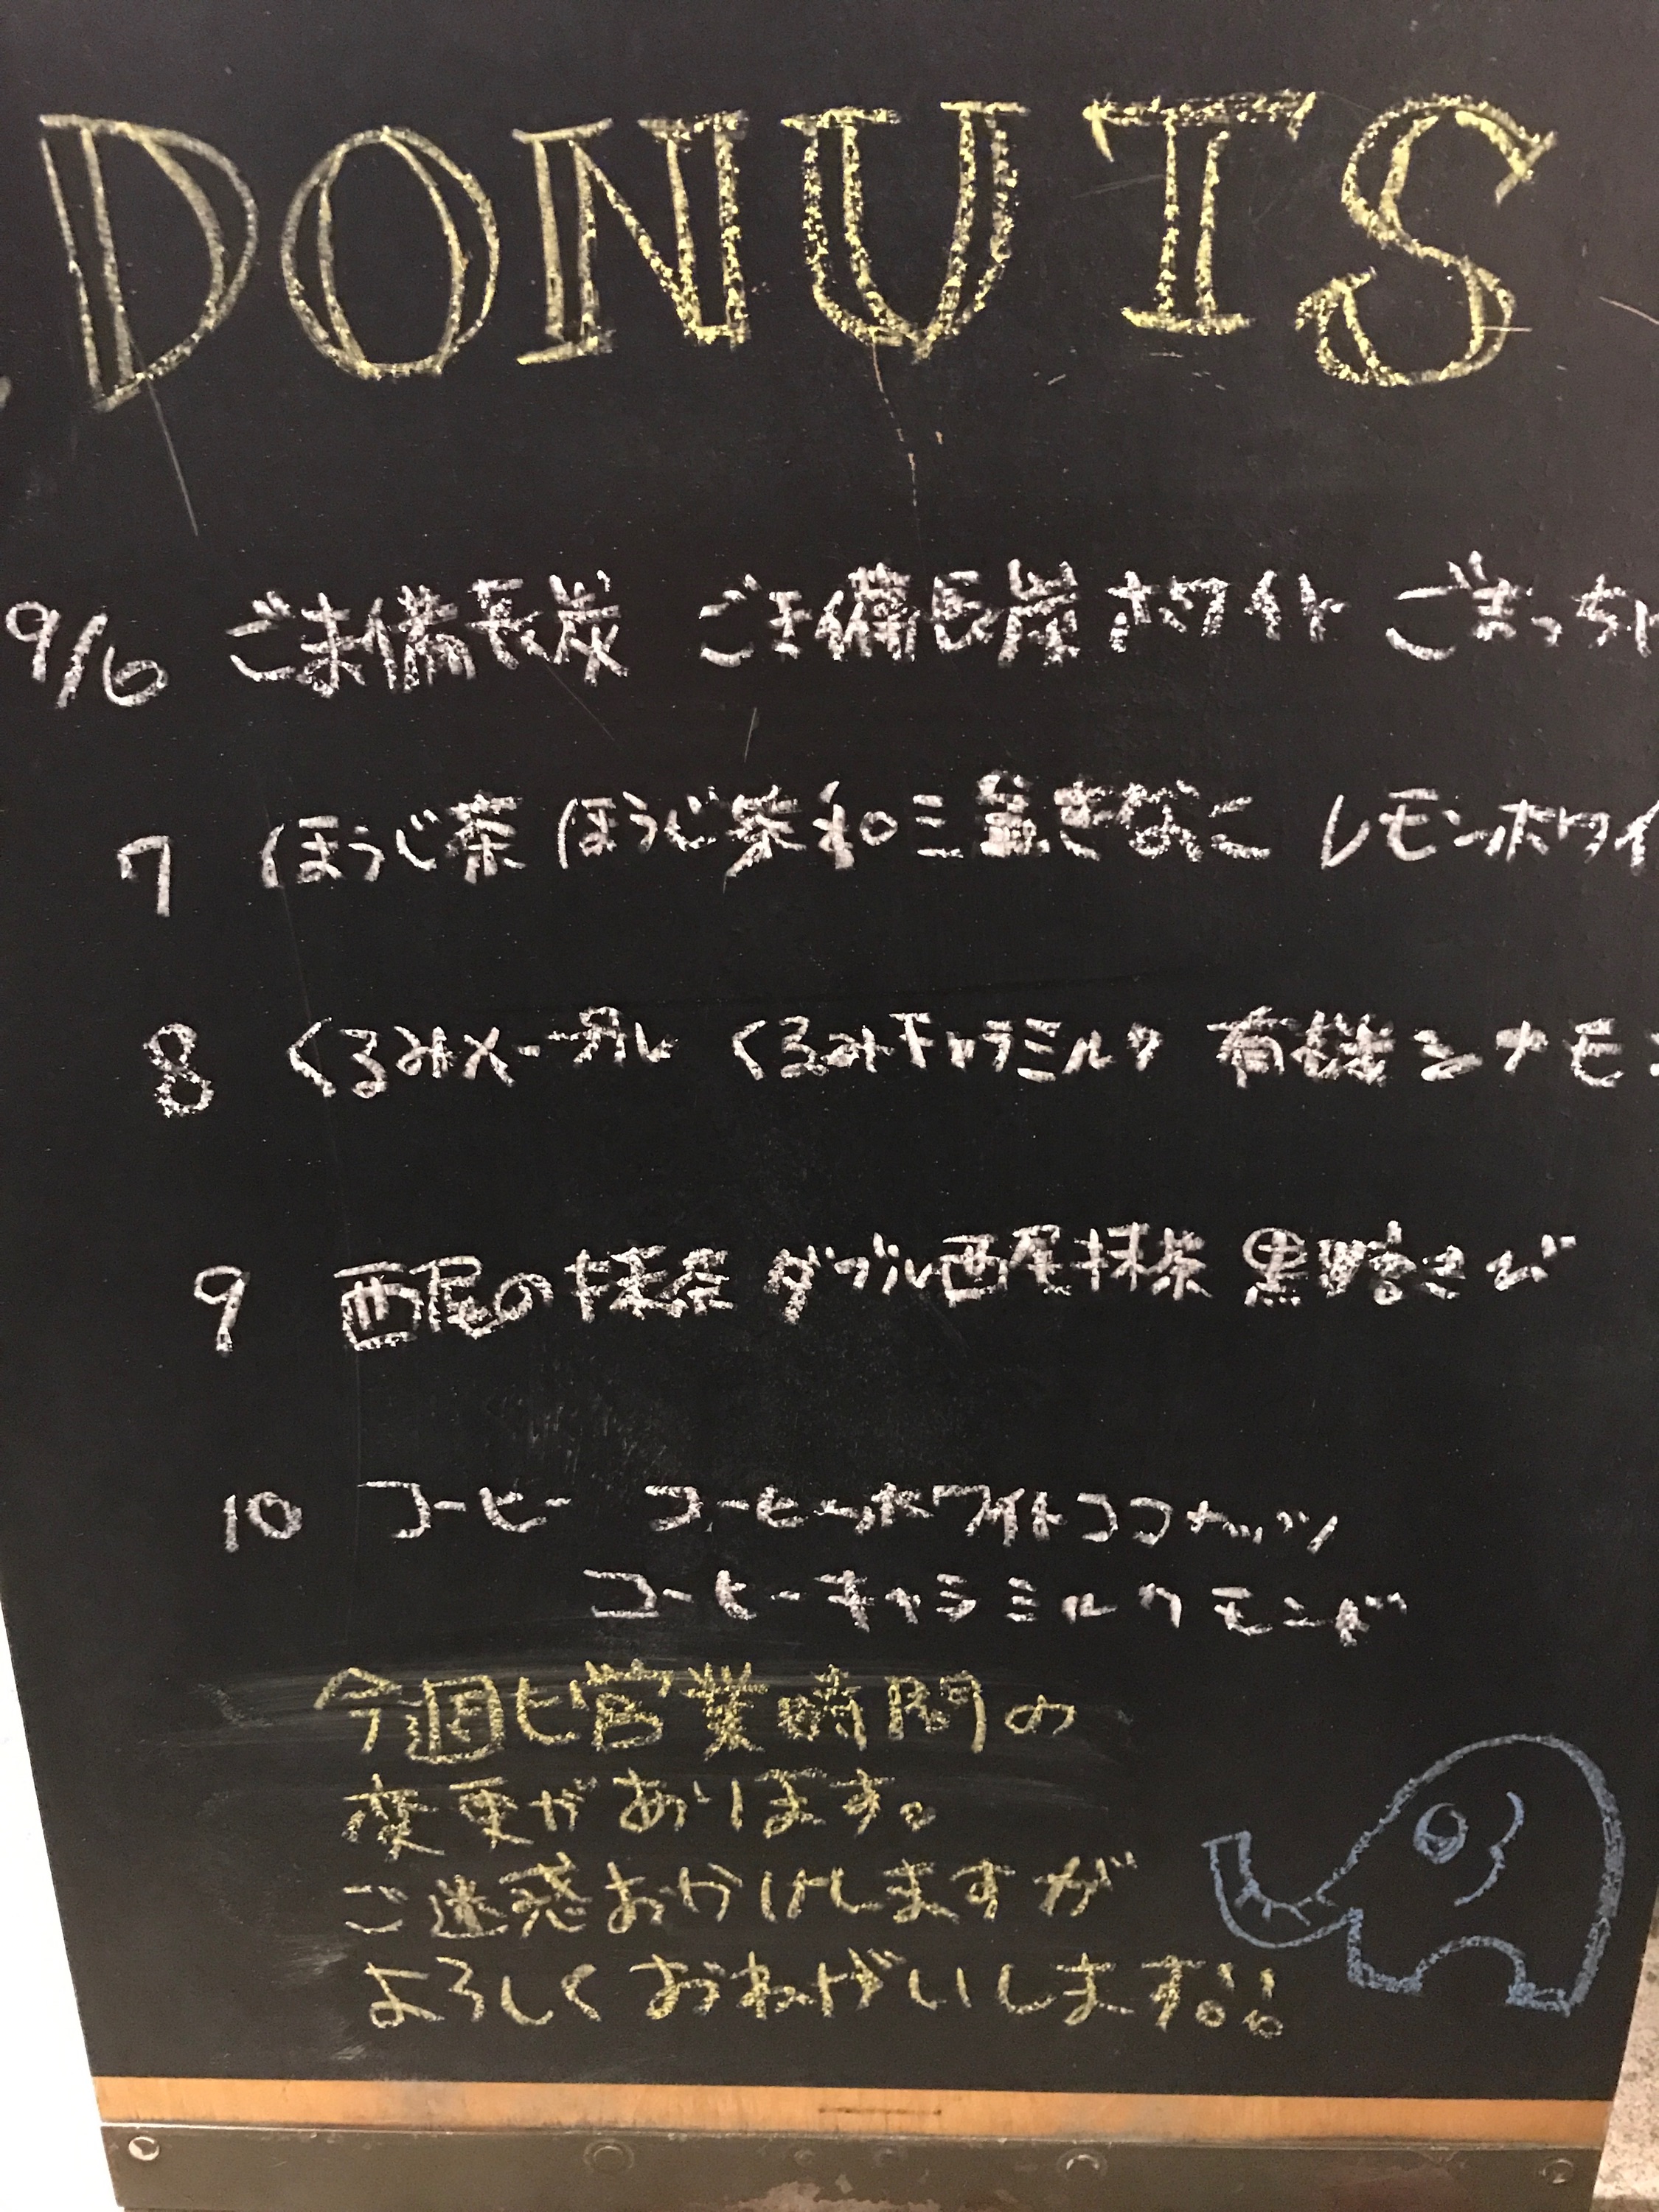 DONUTS
9/6 ごま備長炭 ごま備長炭ホワイト ごまっちゃ
7 ほうじ茶 ほうじ茶和三盆きなこ レモンホワイ
8 くるみメープル くるみキャラミルク 有機シナモン
9 西尾の抹茶 ダブル西尾抹茶 黒糖きび
10 コーヒー コーヒーホワイトココナッツ
コーヒーキャラミルクモンド
今週も営業時間の
変更があります。
ご迷惑おかけしますが
よろしくおねがいします!!